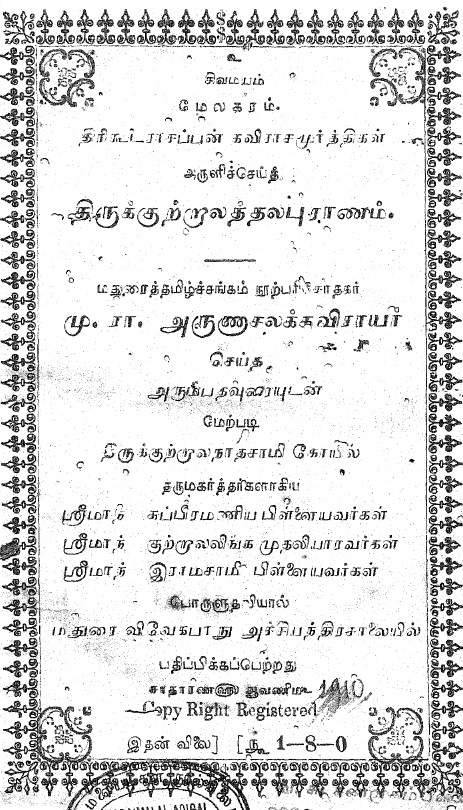 உ
சிவமயம்
மேலகரம்.
திரிகூடராசப்பன் கவிராசமூர்த்திகள்
அருளிச்செய்த
திருக்குற்றாலத்தலபுராணம்.
மதுரைத்தமிழ்ச்சங்கம் நூற்பரிசோதகர்
மு. ரா. அருணாசலக்கவிராயர்
செய்த
அரும்பதவுரையுடன்
மேற்படி
திருக்குற்றாலநாதசாமி கோயில்
தருமகர்த்தர்களாகிய
ஸ்ரீமாந் சுப்பிரமணிய பிள்ளையவர்கள்
ஸ்ரீமாந் குற்றாலலிங்க முதலியாரவர்கள்
ஸ்ரீமாந் இராமசாமி பிள்ளையவர்கள்
பொருளுதவியால்
மதுரை விவேகபாநு அச்சியந்திரசாலையில்
பதிப்பிக்கப்பெற்றது
சாதாரண௵ ஆவணி௴ 1910
Copy Right Registered
இதன் விலை] [ரூ 1—8—0